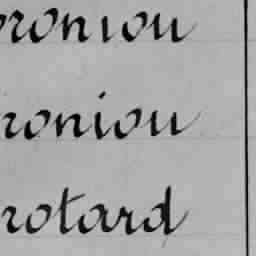 roniou
roniou
rotard